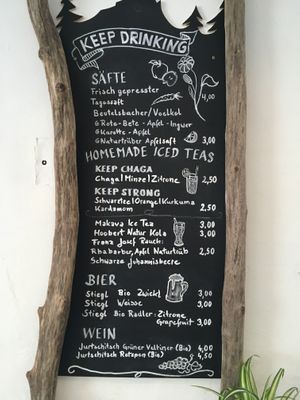 KEEP DRINKING
SÄFTE
Frisch gepresster
Tagessaft 4,00
Beutelsbacher/Voelkel
Rote-Bete-Apfel-Ingwer
Karotte-Apfel
Naturtrüber Apfelsaft 3,00
HOMEMADE ICED TEAS
KEEP CHAGA
Chaga|Minze|Zitrone 2,50
KEEP STRONG
Schwarztee|Orange|Kurkuma
Kardamom 2,50
Makava Ice Tea 3,00
Hoobert Natur Kola 3,00
Franz Josef Rauch:
Rhabarber, Apfel Naturtrüb 2,50
Schwarze Johannisbeere
BIER
Stiegl Bio Zwickl 3,00
Stiegl Weisse 3,00
Stiegl Bio Radler: Zitrone
Grapefruit 3,00
WEIN
Jurtschitsch Grüner Veltiner (Bio) 4,00
Jurtschitsch Rotspon (Bio) 4,50